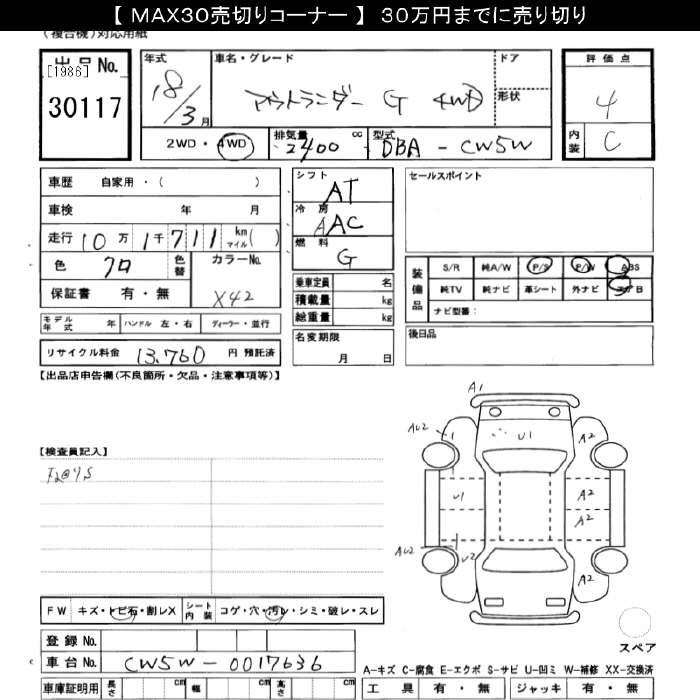 【 MAX30売切りコーナー 】 30万円までに売り切り
(複合機)対応用紙
出品No.
[1986]
30117
年式
18/3月
車名・グレード
アウトランダー G 4WD
ドア
形状
2WD・4WD
排気量
2400 cc
型式
DBA - CW5W
評価点
4
内装
C
車歴 自家用・( )
車検 年 月
走行 10万1千711 km マイル( )
色 クロ 色替 カラーNo.
保証書 有・無 X42
モデル年式 年 ハンドル 左・右 ディーラー・並行
リサイクル料金 13,760 円 預託済
シフト
AT
冷房
AAC
燃料
G
乗車定員 名
積載量 kg
総重量 kg
名変期限
月 日
セールスポイント
装備品
S/R 純A/W P/S P/W ABS
純TV 純ナビ 革シート 外ナビ エアB
ナビ型番:
後日品
【出品店申告欄(不良箇所・欠品・注意事項等)】
【検査員記入】
A1
AU2
U1
A2
U1
A2
A2
AU2
U2
A2
スペア
FW キズ・トビ石・割レX シート内装 コゲ・穴・汚レ・シミ・破レ・スレ
登録No.
車台No. CW5W-0017636
車庫証明用 長さ cm 幅 cm 高さ cm
A-キズ C-腐食 E-エクボ S-サビ U-凹ミ W-補修 XX-交換済
工具 有・無 ジャッキ 有・無